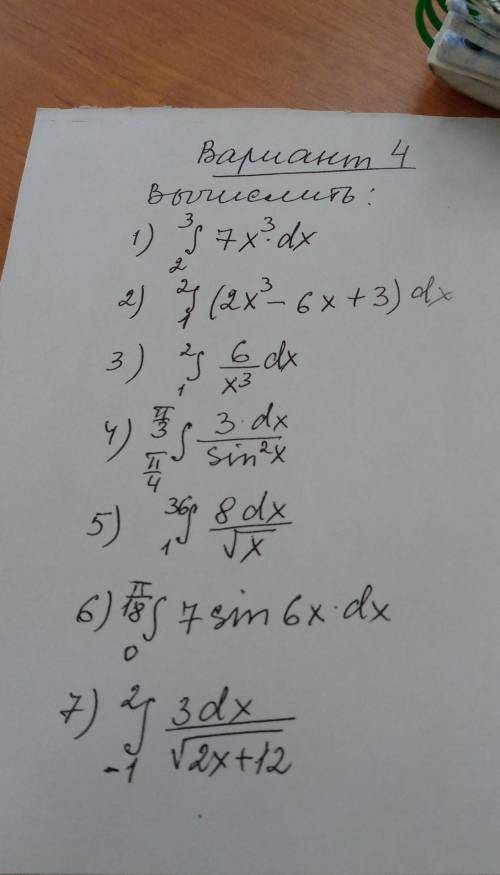 Вариант 4
Вычислить:
1) ₂³∫ 7x³·dx
2) ₁²∫ (2x³ - 6x + 3) dx
3) ₁²∫ 6/x³ dx
4) π/4 π/3 ∫ 3·dx/sin²x
5) ₁³⁶∫ 8dx/√x
6) ₀ π/18 ∫ 7 sin 6x·dx
7) ₋₁²∫ 3dx/√(2x+12)